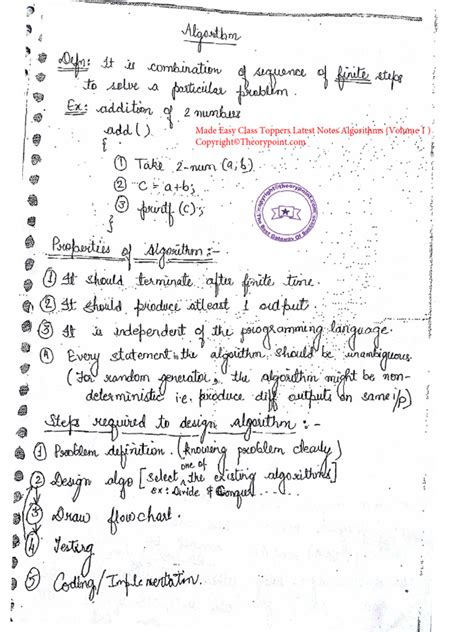 Algorithm
Defn: It is combination of sequence of finite steps
to solve a particular problem.
Ex: addition of 2 numbers
add()
Made Easy Class Toppers Latest Notes Algorithms (Volume I )
Copyright©Theorypoint.com
{
① Take 2-num (a,b)
② c = a+b;
③ printf (c);
}
Properties of Algorithm:-
① It should terminate after finite time.
② It should produce atleast 1 output.
③ It is independent of the programming language.
④ Every statement in the algorithm should be unambiguous.
(For random generator, the algorithm might be non-
deterministic i.e. produce diff outputs on same i/p)
Steps required to design algorithm :-
① Problem definition. (knowing problem clearly)
② Design algo [select one of the existing algorithms]
ex: Divide & Conquer ......
③ Draw flowchart.
④ Testing
⑤ Coding/Implementation.